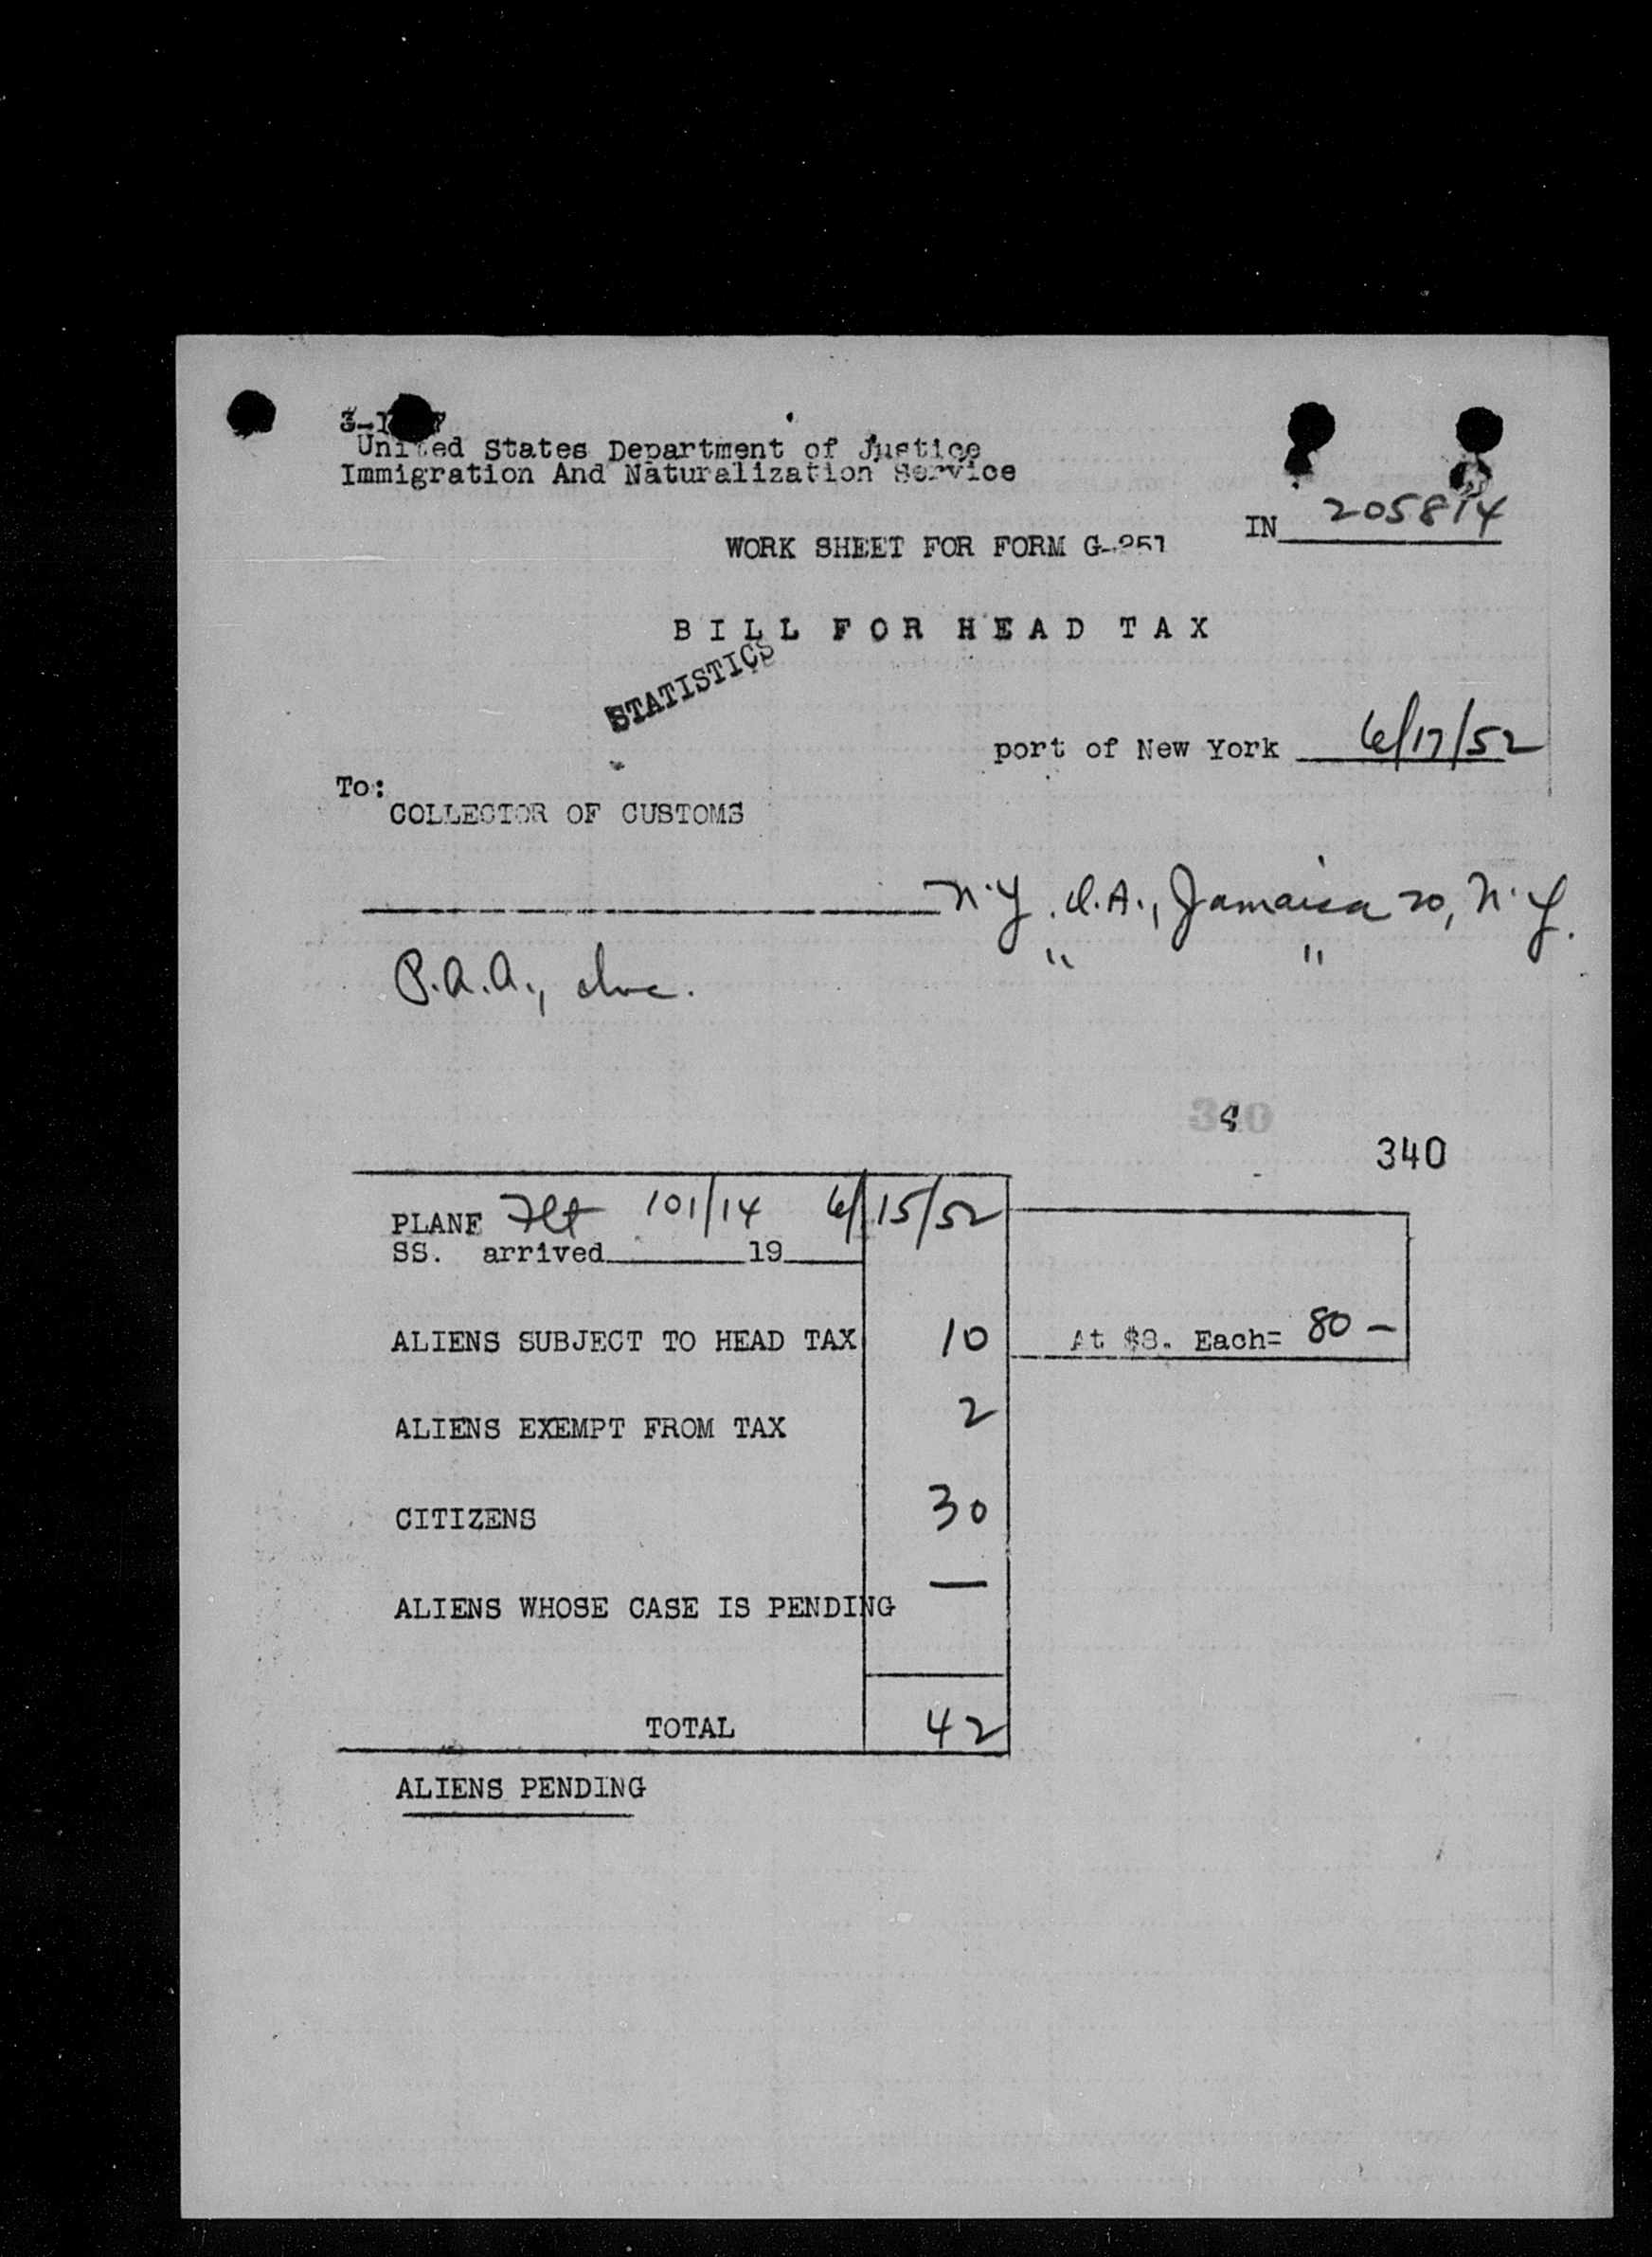 United States Department of Justice
Immigration And Naturalization Service
IN 205814
WORK SHEET FOR FORM G-251
BILL FOR HEAD TAX
STATISTICS
port of New York 6/17/52
To:
COLLECTOR OF CUSTOMS
N.Y. I.A., Jamaica 20, N.Y.
P.A.A., Inc. " "
340
340
PLANE Flt 101/14 6/15/52
SS. arrived 19
ALIENS SUBJECT TO HEAD TAX 10 At $8. Each= 80 —
ALIENS EXEMPT FROM TAX 2
CITIZENS 30
ALIENS WHOSE CASE IS PENDING —
TOTAL 42
ALIENS PENDING